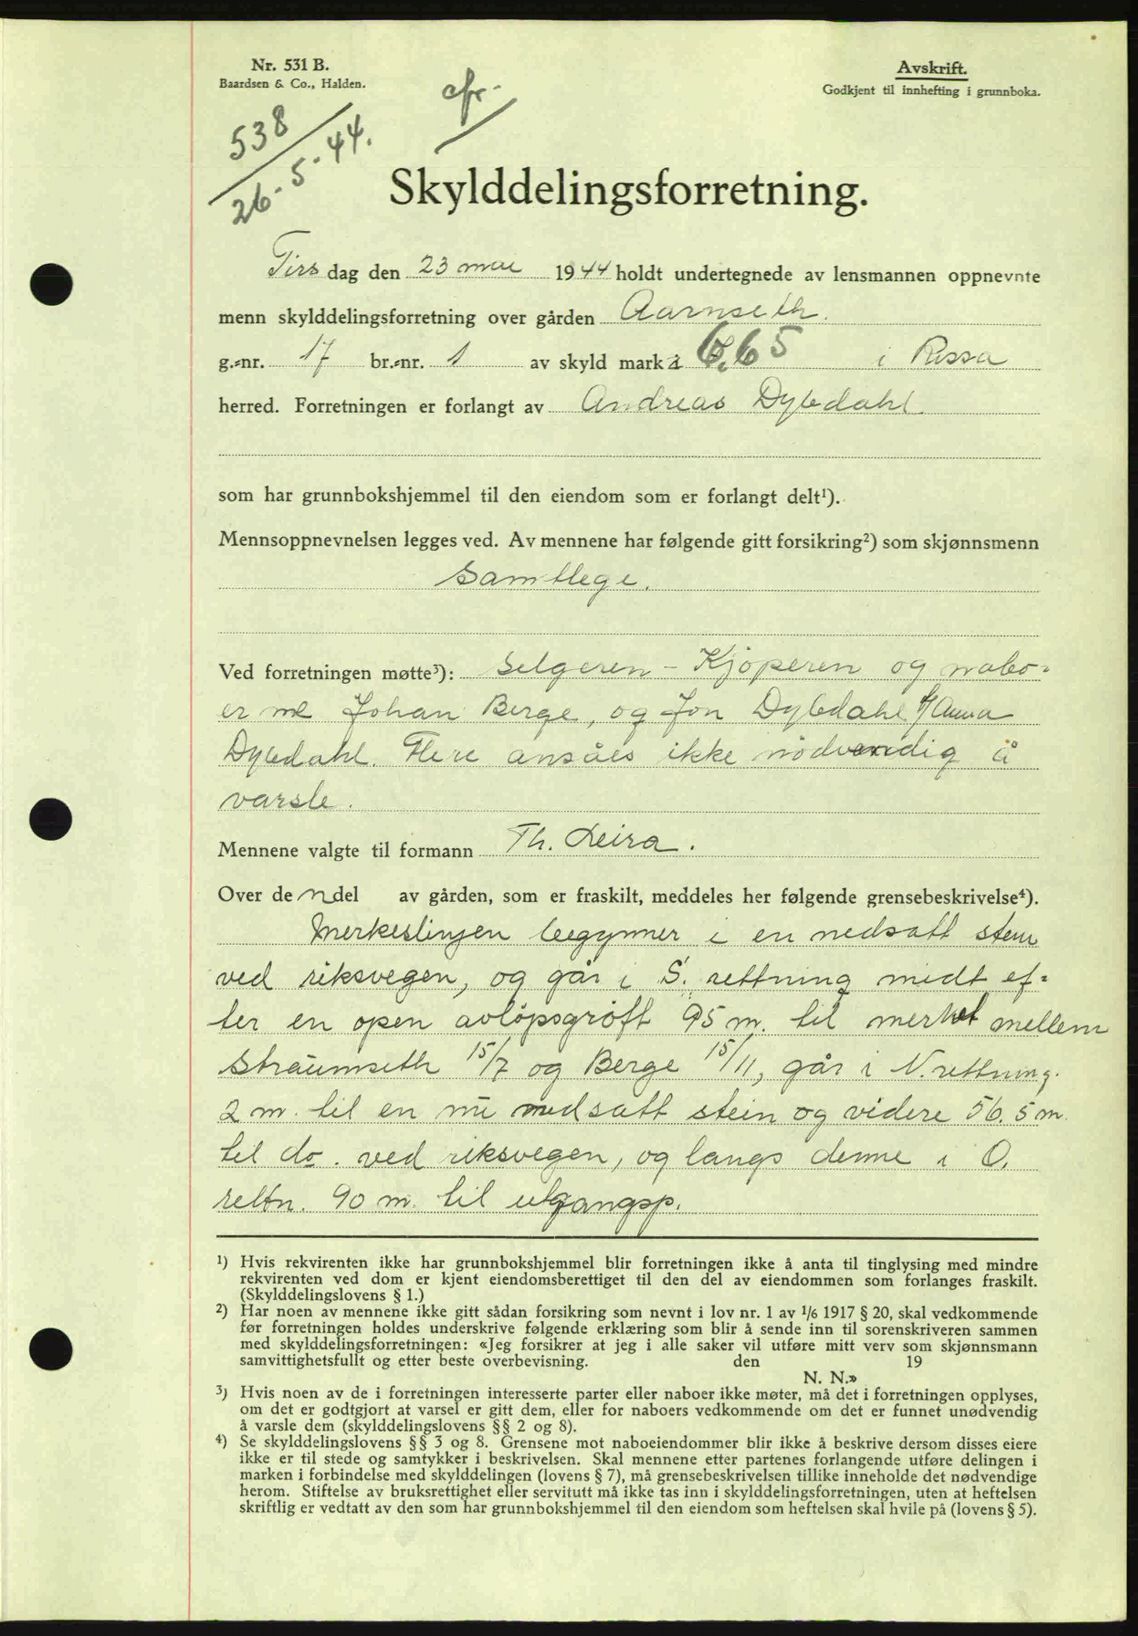 Nr. 531 B.
Baardsen & Co., Halden.
Avskrift.
Godkjent til innhefting i grunnboka.
cfr.
538
26-5-44.
Skylddelingsforretning.
Tirsdag den 23 mai 1944 holdt undertegnede av lensmannen oppnevnte
menn skylddelingsforretning over gården Aarnseth.
g.-nr. 17 br.-nr. 1 av skyld mark 6,65 i Rissa
herred. Forretningen er forlangt av Andreas Dybdahl.
som har grunnbokshjemmel til den eiendom som er forlangt delt¹).
Mennsoppnevnelsen legges ved. Av mennene har følgende gitt forsikring²) som skjønnsmenn
Samtlege.
Ved forretningen møtte³): Selgeren – Kjøperen og nabo-
erne Johan Berge, og Jon Dybdahl f/ Anna
Dybdahl. Flere ansåes ikke nödvendig å
varsle.
Mennene valgte til formann Th. Leira.
Over den del av gården, som er fraskilt, meddeles her følgende grensebeskrivelse⁴).
Merkeslinjen begynner i en nedsatt stein
ved riksvegen, og går i S. rettning midt ef-
ter en open avlöpsgröft 95 m. til merket mellem
Straumseth 15/7 og Berge 15/11, går i N. rettning.
2 m. til en nu nedsatt stein og videre 56.5 m
til do. ved riksvegen, og langs denne i O.
rettn. 90 m. til utgangsp.
¹) Hvis rekvirenten ikke har grunnbokshjemmel blir forretningen ikke å anta til tinglysing med mindre
rekvirenten ved dom er kjent eiendomsberettiget til den del av eiendommen som forlanges fraskilt.
(Skylddelingslovens § 1.)
²) Har noen av mennene ikke gitt sådan forsikring som nevnt i lov nr. 1 av 1/6 1917 § 20, skal vedkommende
før forretningen holdes underskrive følgende erklæring som blir å sende inn til sorenskriveren sammen
med skylddelingsforretningen: «Jeg forsikrer at jeg i alle saker vil utføre mitt verv som skjønnsmann
samvittighetsfullt og etter beste overbevisning. den 19
N. N.»
³) Hvis noen av de i forretningen interesserte parter eller naboer ikke møter, må det i forretningen opplyses,
om det er godtgjort at varsel er gitt dem, eller for naboers vedkommende om det er funnet unødvendig
å varsle dem (skylddelingslovens §§ 2 og 8).
⁴) Se skylddelingslovens §§ 3 og 8. Grensene mot naboeiendommer blir ikke å beskrive dersom disses eiere
ikke er til stede og samtykker i beskrivelsen. Skal mennene etter partenes forlangende utføre delingen i
marken i forbindelse med skylddelingen (lovens § 7), må grensebeskrivelsen tillike inneholde det nødvendige
herom. Stiftelse av bruksrettighet eller servitutt må ikke tas inn i skylddelingsforretningen, uten at heftelsen
skriftlig er vedtatt av den som har grunnbokshjemmel til den eiendom som heftelsen skal hvile på (lovens § 5).